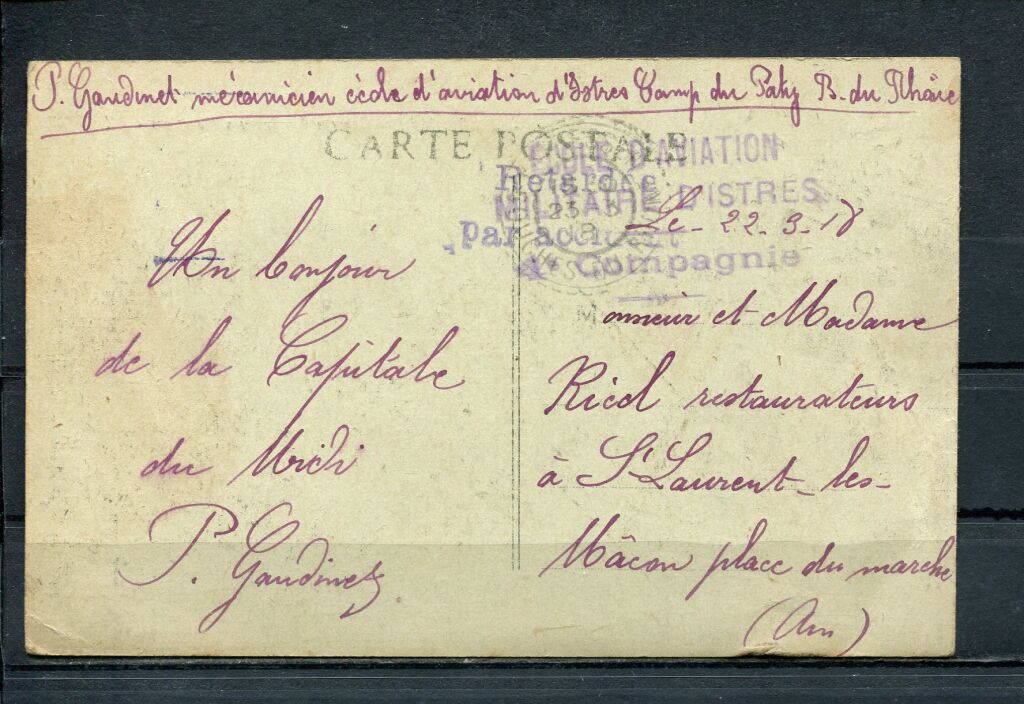 P. Gaudinet mécanicien école d'aviation d'Istres Camp du Paty B. du Rhône
CARTE POSTALE
ECOLE D'AVIATION
MILITAIRE D'ISTRES
Retardé
Par accident
Compagnie
23
18
Le - 22 - 3 - 18
Un bonjour
de la Capitale
du Midi
P. Gaudinet
Monsieur et Madame
Ricol restaurateurs
à St Laurent-les-
Mâcon place du marche
(Ain)